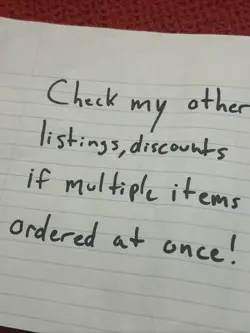 Check my other
listings, discounts
if multiple items
ordered at once!